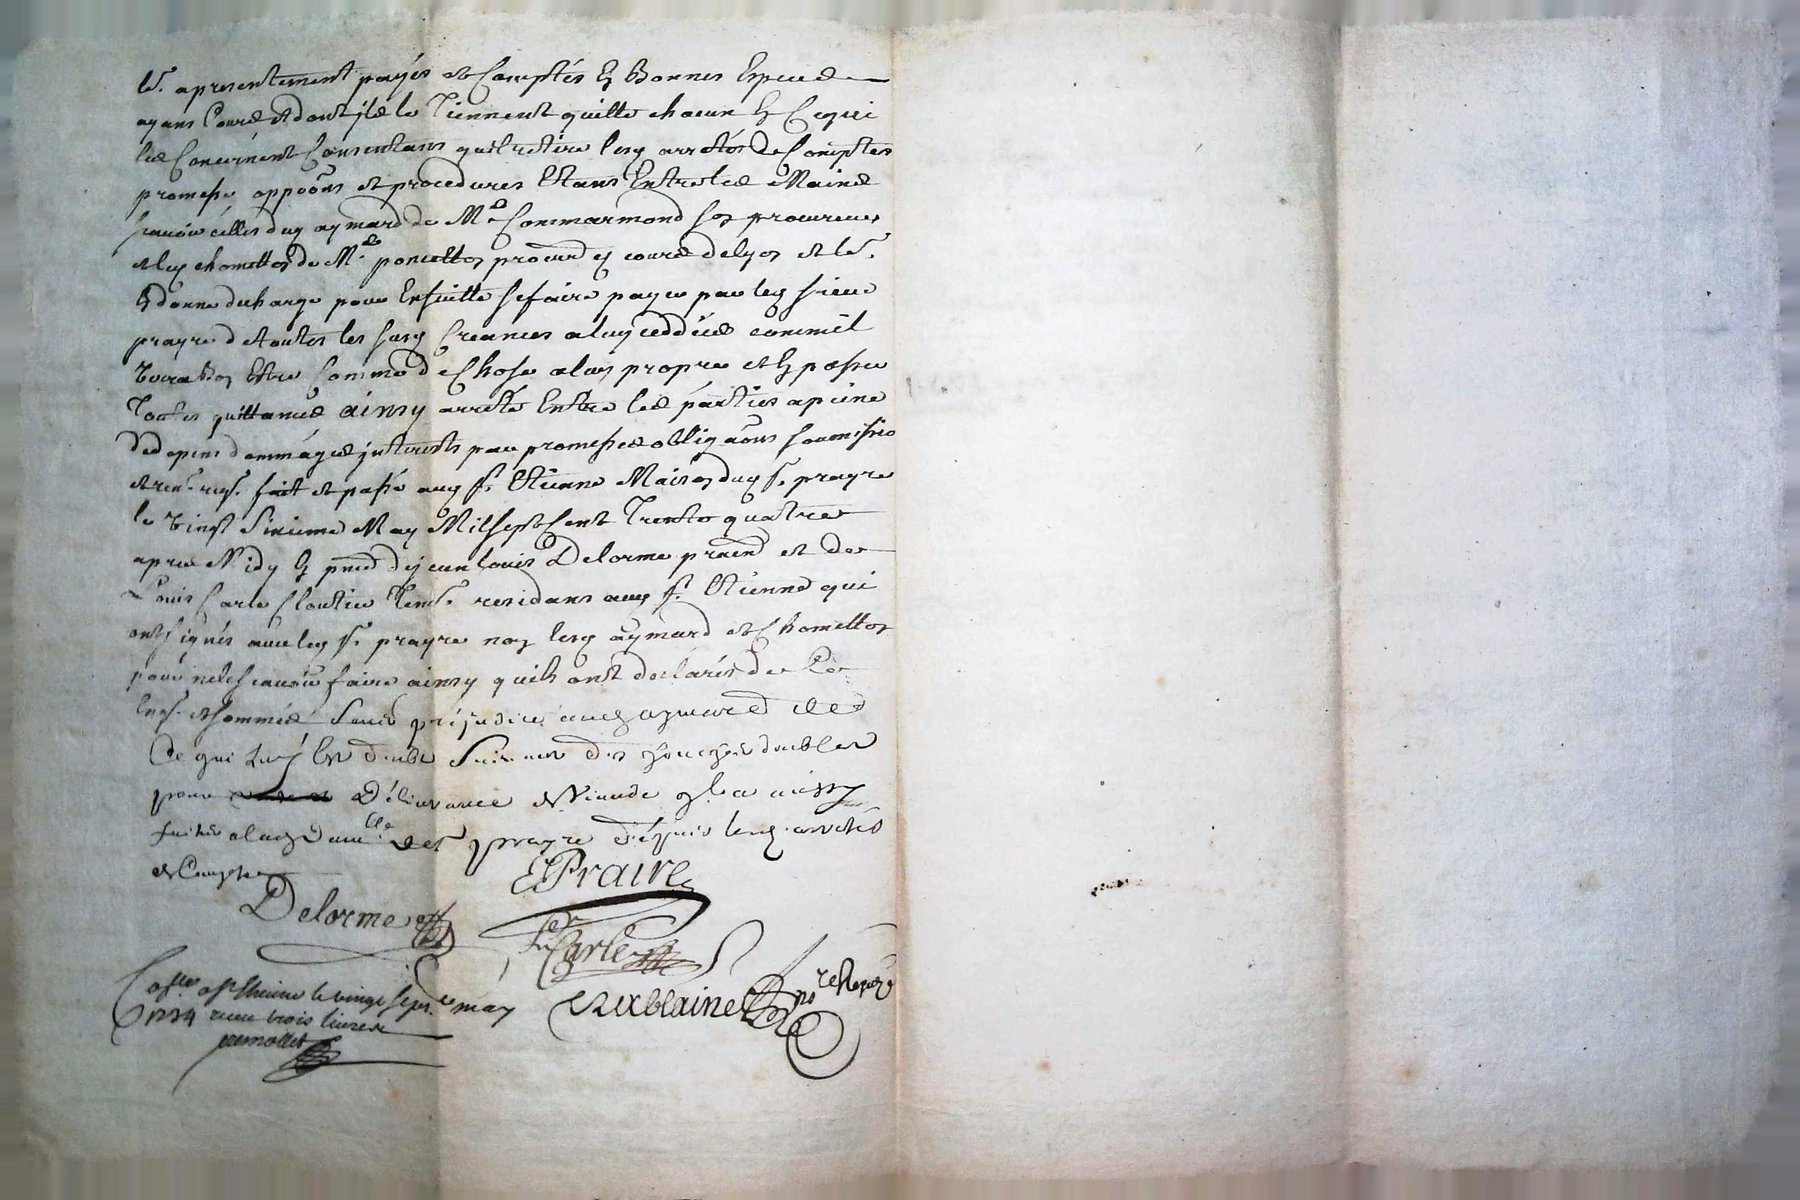 apresentement payés et Comptés En Bonnes Especes
ayans Cours et dont ils le Tiennent quitte chacun En Ce qui
les Concernent Consentans quil retire lesq arretés de Comptes
promesse oppoons et procedures Etans Entre les Mains
scavoir celles duq aymard de Me Commarmond son procureur
et leq chometton de Me poncetton procur es cours de lyon et
En donne decharge pour Ensuitte se faire payer par leq sieur
prayre de toutes les susq Creances a luy ceddées comme il
verra Bon Estre Comme de Chose a luy propre et En passer
Toutes quittances ainsy arreté Entre les parties a peine
De depens dommages interests par promesses obligaons soumissio
et fait et passé auq St Etienne Maison duq Sr prayre
le vingt Sixieme May Mil sept Cent Trente quatre
apres Midy En pnce de jean louis Delorme praend et de
Louis Carle Cloutier residans auq St Etienne qui
ont signés avec leq Sr prayre non lesq aymard et Chometton
pour ne le scavoir faire ainsy quils ont declarés de Ce
Enqs et sommés Sans prejudice auq aymard de
Ce qui luy Est deub
pour Délivrance de Viande ainsy
faites a luq prayre depuis leq arretés
de Compte
EPraire
Delorme
Carle
Rublaine nore Royal
Colle a St Etienne le vingt sept may
1734 receu trois livres
permollet